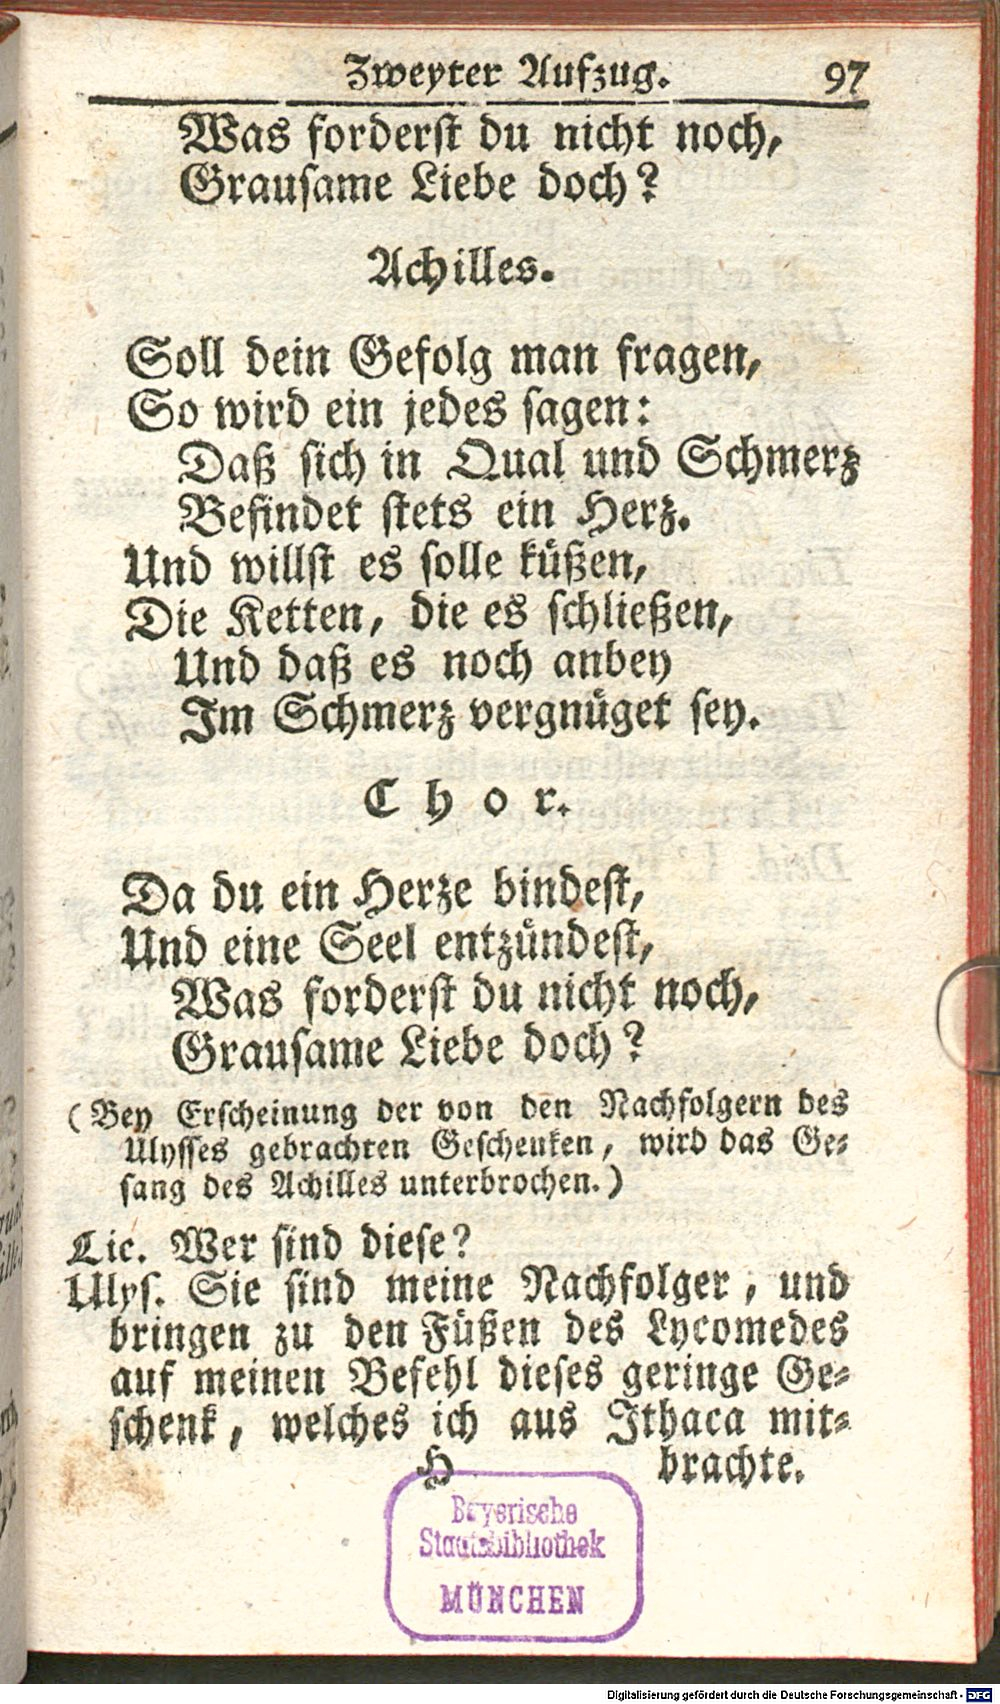 Zweyter Aufzug. 97
Was forderst du nicht noch,
Grausame Liebe doch?
Achilles.
Soll dein Gefolg man fragen,
So wird ein jedes sagen:
Daß sich in Qual und Schmerz
Befindet stets ein Herz.
Und willst es solle küßen,
Die Ketten, die es schließen,
Und daß es noch anbey
Im Schmerz vergnüget sey.
Chor.
Da du ein Herze bindest,
Und eine Seel entzündest,
Was forderst du nicht noch,
Grausame Liebe doch?
(Bey Erscheinung der von den Nachfolgern des
Ulysses gebrachten Geschenken, wird das Ge-
sang des Achilles unterbrochen.)
Lic. Wer sind diese?
Ulys. Sie sind meine Nachfolger, und
bringen zu den Füßen des Lycomedes
auf meinen Befehl dieses geringe Ge-
schenk, welches ich aus Ithaca mit-
H brachte.
Bayerische
Staatsbibliothek
MÜNCHEN
Digitalisierung gefördert durch die Deutsche Forschungsgemeinschaft - DFG